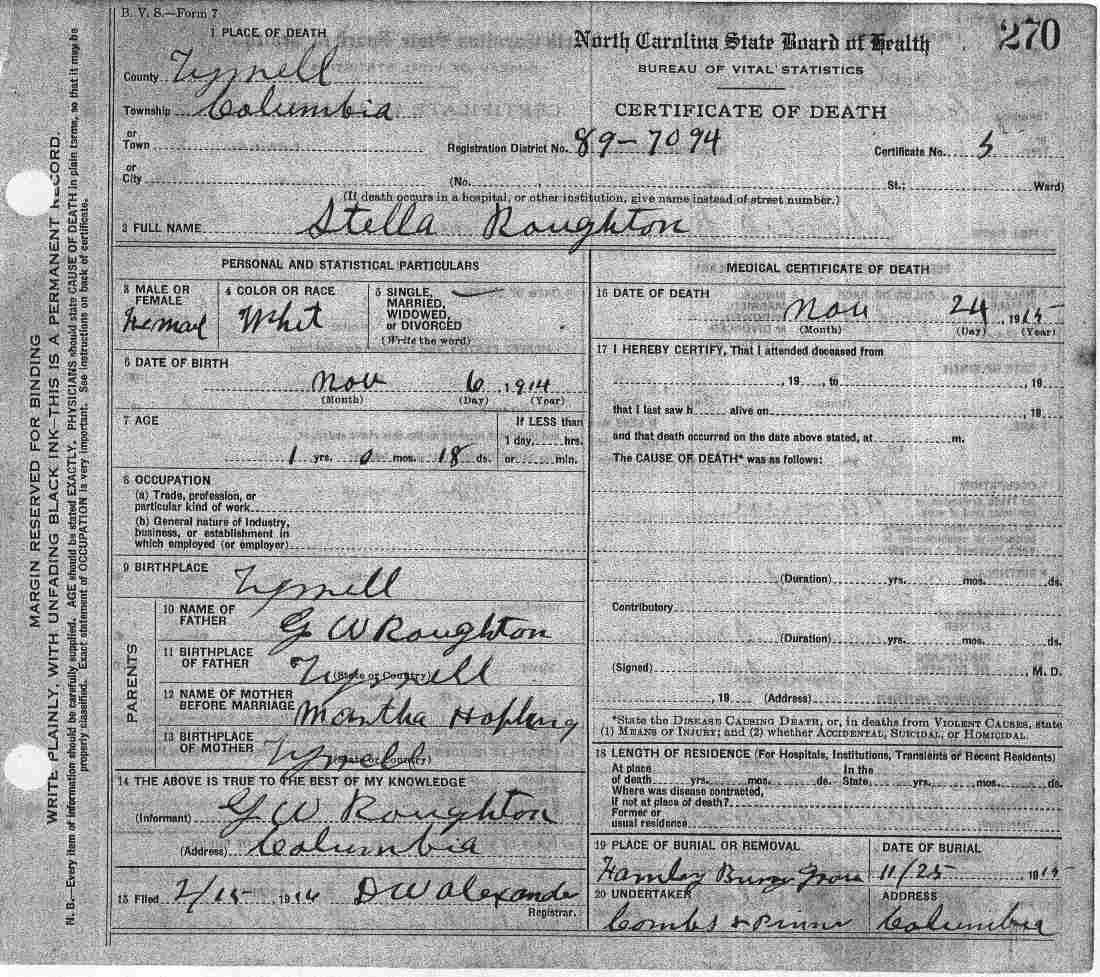 B. V. S.—Form 7
270
1 PLACE OF DEATH
North Carolina State Board of Health
BUREAU OF VITAL STATISTICS
County Tyrrell
CERTIFICATE OF DEATH
Township Columbia
or
Town
Registration District No. 89-7094
Certificate No. 5
or
City
(No.
St.;
Ward)
(If death occurs in a hospital, or other institution, give name instead of street number.)
2 FULL NAME Stella Roughton
PERSONAL AND STATISTICAL PARTICULARS
3 MALE OR FEMALE Femail
4 COLOR OR RACE Whit
5 SINGLE, MARRIED, WIDOWED, or DIVORCED
(Write the word)
6 DATE OF BIRTH
Nov 6, 1914
(Month) (Day) (Year)
7 AGE
If LESS than
1 day, hrs.
1 yrs. 0 mos. 18 ds. or min.
8 OCCUPATION
(a) Trade, profession, or
particular kind of work
(b) General nature of Industry,
business, or establishment in
which employed (or employer)
9 BIRTHPLACE Tyrrell
PARENTS
10 NAME OF FATHER G W Roughton
11 BIRTHPLACE OF FATHER Tyrrell
(State or Country)
12 NAME OF MOTHER BEFORE MARRIAGE Martha
13 BIRTHPLACE OF MOTHER Tyrrell
(State or Country)
14 THE ABOVE IS TRUE TO THE BEST OF MY KNOWLEDGE
(Informant) G W Roughton
(Address) Columbia
15 Filed 2/15 1916 D W Alexander
Registrar.
MEDICAL CERTIFICATE OF DEATH
16 DATE OF DEATH
Nov 24, 1915
(Month) (Day) (Year)
17 I HEREBY CERTIFY, That I attended deceased from
, 19 , to , 19
that I last saw h alive on , 19
and that death occurred on the date above stated, at m.
The CAUSE OF DEATH* was as follows:
(Duration) yrs. mos. ds.
Contributory
(Duration) yrs. mos. ds.
(Signed) M. D.
, 19 (Address)
*State the DISEASE CAUSING DEATH, or, in deaths from VIOLENT CAUSES, state
(1) MEANS OF INJURY; and (2) whether ACCIDENTAL, SUICIDAL, or HOMICIDAL.
18 LENGTH OF RESIDENCE (For Hospitals, Institutions, Transients or Recent Residents)
At place In the
of death yrs. mos. ds. State yrs. mos. ds.
Where was disease contracted,
If not at place of death?
Former or
usual residence
19 PLACE OF BURIAL OR REMOVAL
DATE OF BURIAL
11/25 1915
20 UNDERTAKER
ADDRESS
Combs & Columbia
MARGIN RESERVED FOR BINDING
WRITE PLAINLY, WITH UNFADING BLACK INK—THIS IS A PERMANENT RECORD.
N. B.—Every item of information should be carefully supplied. AGE should be stated EXACTLY. PHYSICIANS should state CAUSE OF DEATH in plain terms, so that it may be
properly classified. Exact statement of OCCUPATION is very important. See instructions on back of certificate.